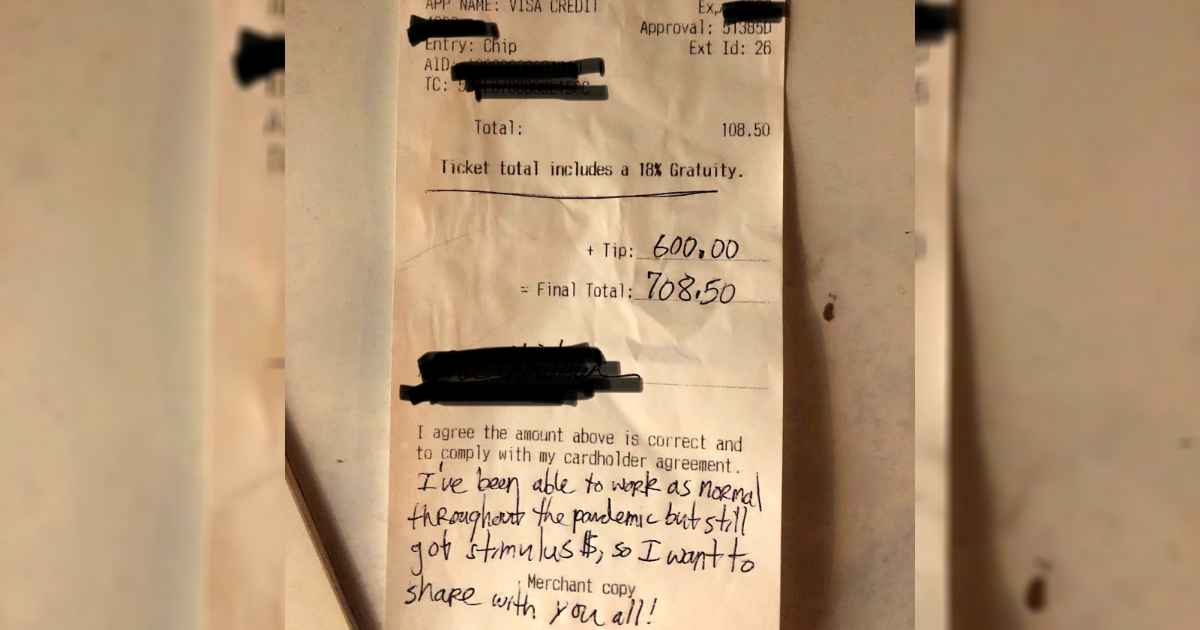 APP NAME: VISA CREDIT
Approval: 51385D
Entry: Chip
Ext Id: 26
AID:
TC:
Total: 108.50
Ticket total includes a 18% Gratuity.
+ Tip: 600.00
= Final Total: 708.50
I agree the amount above is correct and
to comply with my cardholder agreement.
I've been able to work as normal
throughout the pandemic but still
got stimulus $, so I want to
Merchant copy
share with you all!